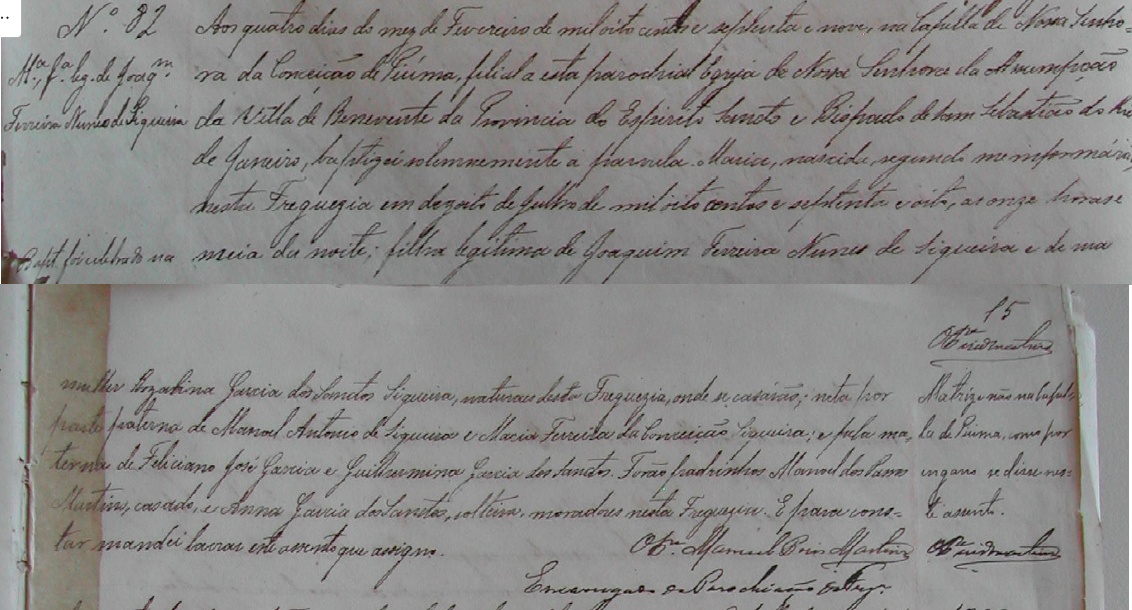 Nº 82
Mª, fª leg. de Joaqm
Ferreira Nunes de Siqueira
Bapt. foi celebrado na
Aos quatro dias do mez de Fevereiro de mil oito centos e septenta e nove, na Capella de Nossa Senho-
ra da Conceição de Piúma, filial a esta parochial Egreja de Nossa Senhora da Assumpção
da Villa de Benevente da Provincia do Espirito Sancto e Bispado de Sam Sebastião do Rio
de Janeiro, baptizei solemnemente a parvula Maria, nascida, segundo me informárão,
nesta Freguezia em dezoito de Julho de mil oito centos e septenta e oito, as onze horas e
meia da noite; filha legitima de Joaquim Ferreira Nunes de Siqueira e de sua
15
mulher Rozalina Garcia dos Sanctos Siqueira, naturaes desta Freguezia, onde se casárão; neta por
parte paterna de Manoel Antonio de Siqueira e Maria Ferreira da Conceição Siqueira; e pela ma-
terna de Feliciano José Garcia e Guilhermina Garcia dos Sanctos. Forão padrinhos Manoel dos Passos
Martins, casado, e Anna Garcia dos Sanctos, solteira, moradores nesta Freguezia. E para cons-
tar mandei lavrar este assento que assigno.
Manuel Pires Martins
Encarregado da Parochiação da Freg.
Matriz e não na Capel-
la de Piúma, como por
engano se disse nes-
te assento.